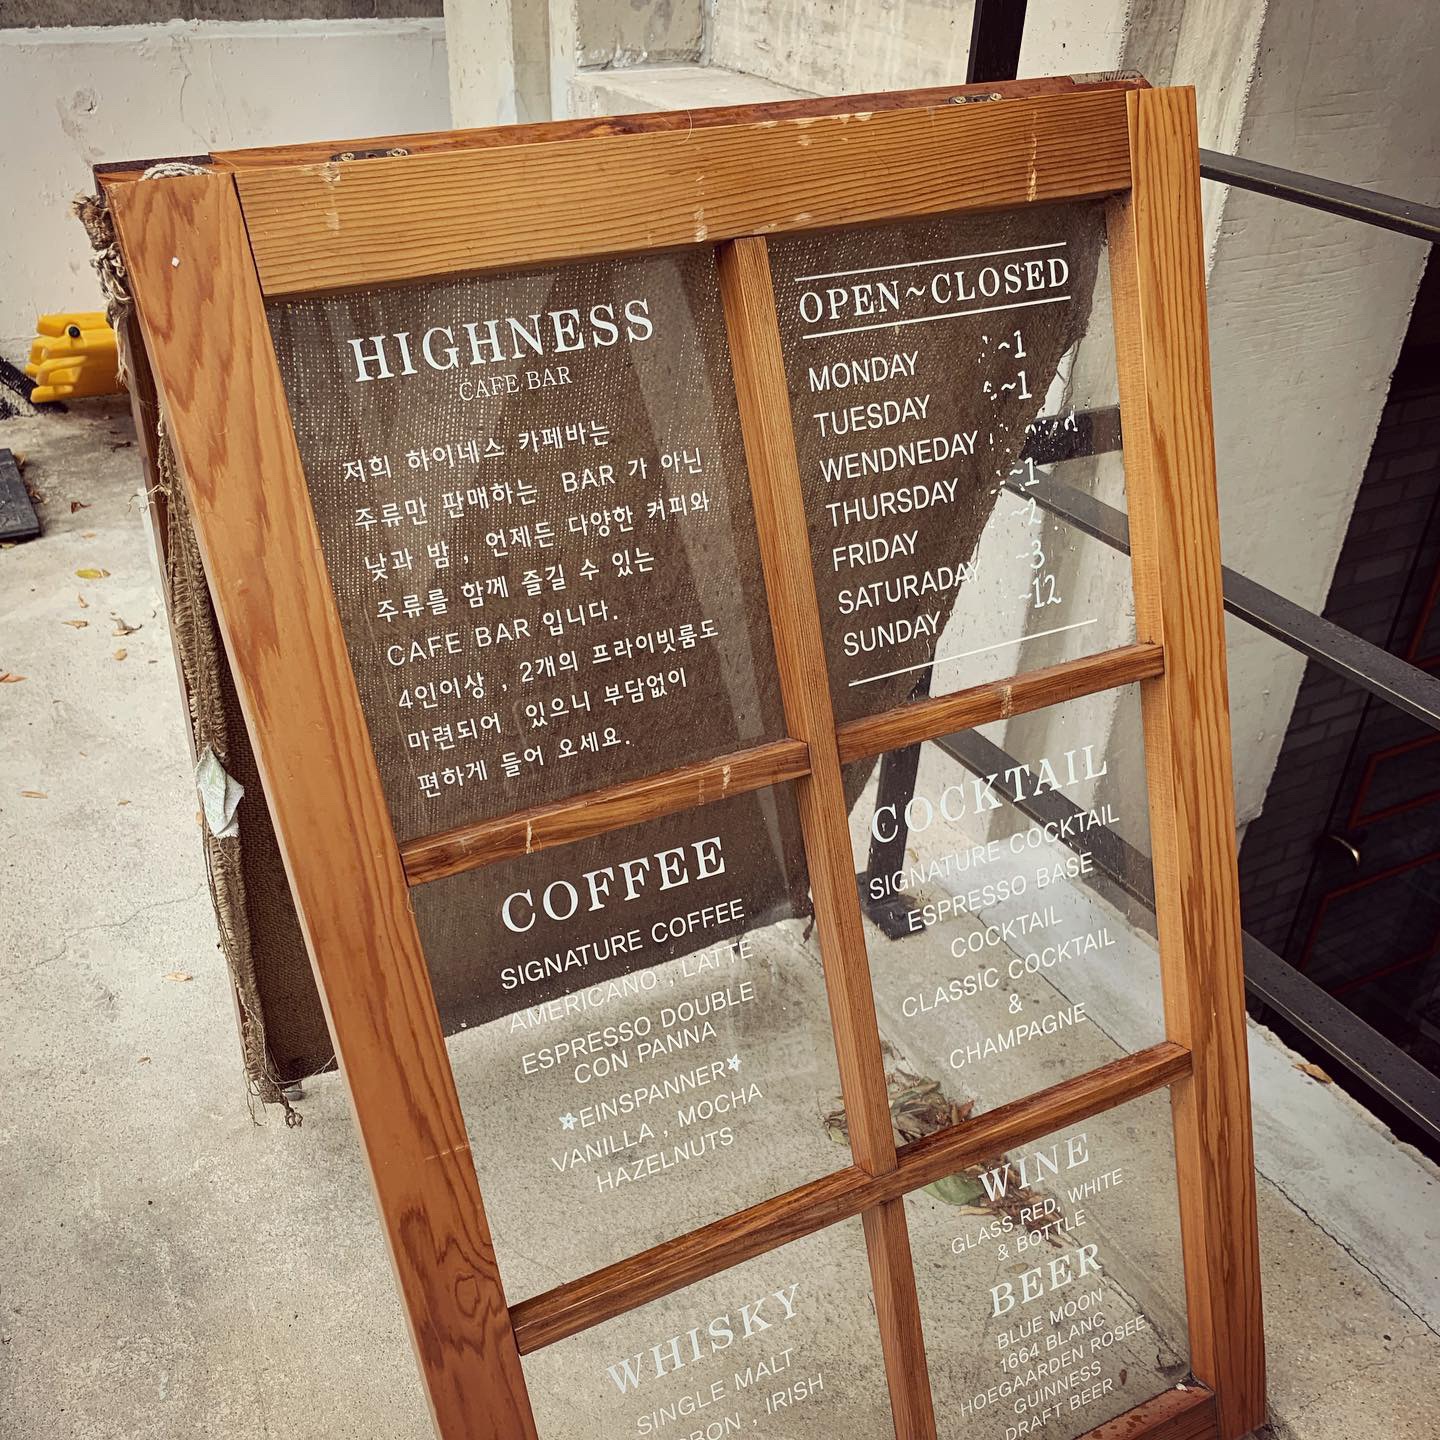 HIGHNESS
CAFE BAR
저희 하이네스 카페바는
주류만 판매하는 BAR 가 아닌
낮과 밤 , 언제든 다양한 커피와
주류를 함께 즐길 수 있는
CAFE BAR 입니다.
4인이상 , 2개의 프라이빗룸도
마련되어 있으니 부담없이
편하게 들어 오세요.
OPEN~CLOSED
MONDAY ~1
TUESDAY ~1
WENDNEDAY
THURSDAY ~1
FRIDAY ~2
SATURADAY ~3
SUNDAY ~12
COFFEE
SIGNATURE COFFEE
AMERICANO , LATTE
ESPRESSO DOUBLE
CON PANNA
EINSPANNER
VANILLA , MOCHA
HAZELNUTS
COCKTAIL
SIGNATURE COCKTAIL
ESPRESSO BASE
COCKTAIL
CLASSIC COCKTAIL
&
CHAMPAGNE
WHISKY
SINGLE MALT
IRISH
WINE
GLASS RED, WHITE
& BOTTLE
BEER
BLUE MOON
1664 BLANC
HOEGAARDEN ROSEE
GUINNESS
DRAFT BEER